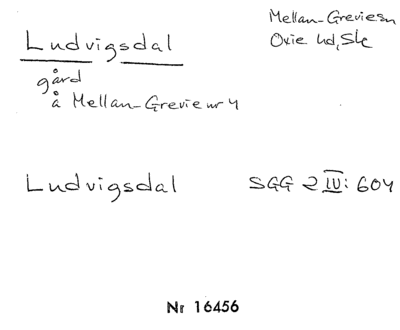 Ludvigsdal
Mellan-Grevie sn
Oxie hd, Sk
gård
å Mellan-Grevie nr 4
Ludvigsdal SGG 2 IV: 604
Nr 16456